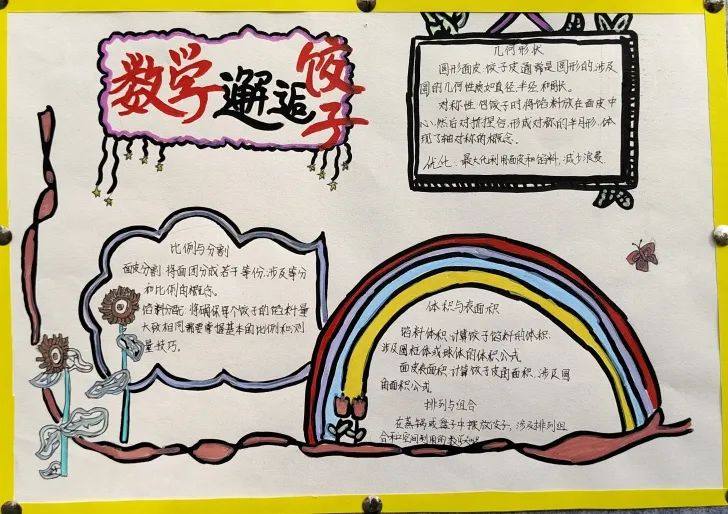 数学邂逅饺子
几何形状
圆形面皮:饺子皮通常是圆形的,涉及
圆的几何性质如直径,半径和周长。
对称性:包饺子时将馅料放在面皮中
心,然后对折捏包,形成对称的半月形,体
现了轴对称的概念。
优化:最大化利用面皮和馅料,减少浪费
比例与分割
面皮分割:将面团分成若干等份,涉及等分
和比例的概念。
馅料分配:将确保每个饺子的馅料量
大致相同需要掌握基本的比例和测
量技巧。
体积与表面积
馅料体积:计算饺子馅料的体积,
涉及圆柱体或球体的体积公式。
面皮表面积:计算饺子皮的面积,涉及圆
的面积公式。
排列与组合
在蒸锅或盘子中摆放饺子,涉及排列组
合和空间利用的数学